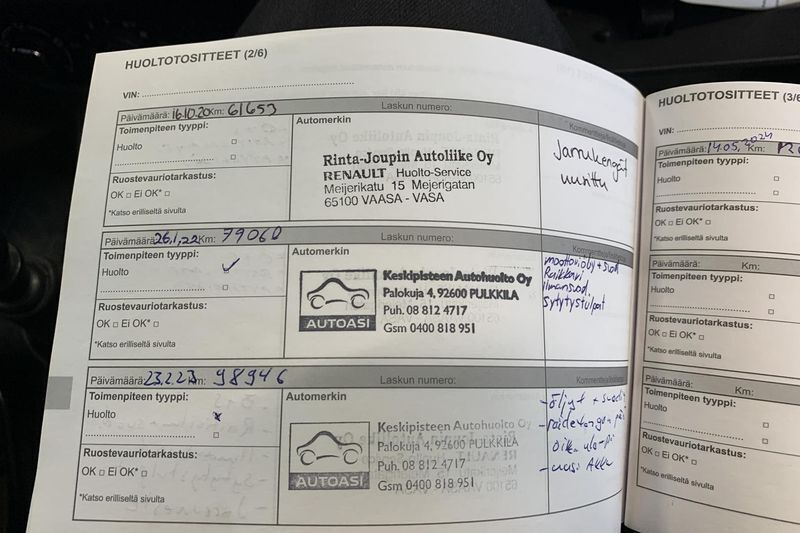 HUOLTOTOSITTEET (2/6)
VIN:
Päivämäärä: 16.10.20 Km: 61653 Laskun numero:
Toimenpiteen tyyppi:
Huolto
Ruostevauriotarkastus:
OK □ Ei OK* □
*Katso erilliseltä sivulta
Automerkin
Rinta-Joupin Autoliike Oy
RENAULT Huolto-Service
Meijerikatu 15 Mejerigatan
65100 VAASA - VASA
Jarrukengät
uusittu
Päivämäärä: 26.1.22 Km: 79060 Laskun numero:
Toimenpiteen tyyppi:
Huolto
Ruostevauriotarkastus:
OK □ Ei OK* □
*Katso erilliseltä sivulta
Automerkin
AUTOASI
Keskipisteen Autohuolto Oy
Palokuja 4, 92600 PULKKILA
Puh. 08 812 4717
Gsm 0400 818 951
moottoriöljy + suod
Raikkari
ilmansuod.
sytytystulpat
Päivämäärä: 23.2.23 Km: 98946 Laskun numero:
Toimenpiteen tyyppi:
Huolto
Ruostevauriotarkastus:
OK □ Ei OK* □
*Katso erilliseltä sivulta
Automerkin
AUTOASI
Keskipisteen Autohuolto Oy
Palokuja 4, 92600 PULKKILA
Puh. 08 812 4717
Gsm 0400 818 951
- öljyt +
- uusi Akku
HUOLTOTOSITTEET (3/6
VIN:
Päivämäärä: 14.05.2024 Km:
Toimenpiteen tyyppi:
Huolto
Ruostevauriotarkastus:
OK □ Ei OK* □
*Katso erilliseltä sivulta
Päivämäärä: Km:
Toimenpiteen tyyppi:
Huolto
Ruostevauriotarkastus:
OK □ Ei OK* □
*Katso erilliseltä sivulta
Päivämäärä: Km:
Toimenpiteen tyyppi:
Huolto
Ruostevauriotarkastus:
OK □ Ei OK* □
*Katso erilliseltä sivulta